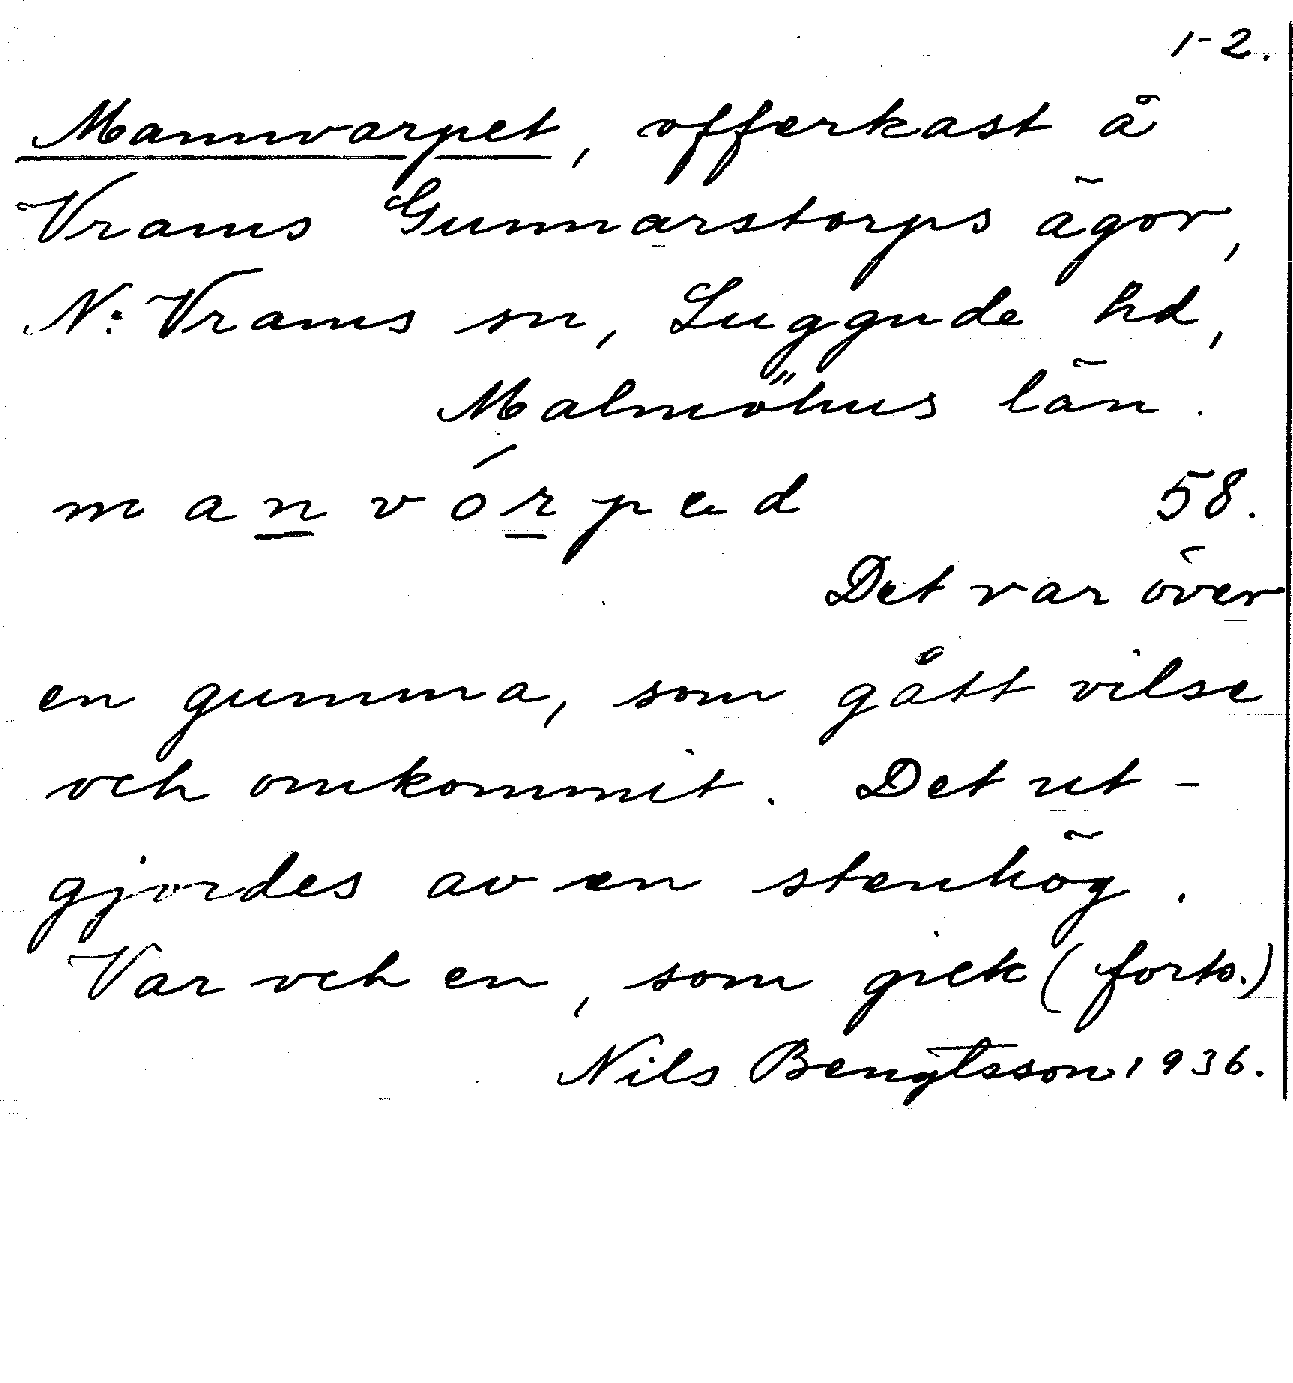 1-2.
Mannvarpet, offerkast å
Vrams Gunnarstorps ägor,
N: Vrams sn, Luggude hd,
Malmöhus län.
manvórpad 58.
Det var över
en gumma, som gått vilse
och omkommit. Det ut-
gjordes av en stenhög.
Var och en, som gick (forts.)
Nils Bengtsson 1936.